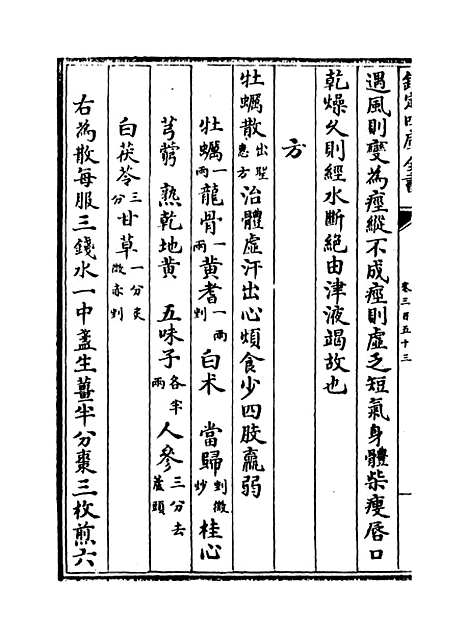 欽定四庫全書
卷三百五十三
遇風則變為痙縱不成痙則虛乏短氣身體柴瘦唇口
乾燥久則經水斷絕由津液竭故也
方
牡蠣散出聖惠方治體虛汗出心煩食少四肢羸弱
牡蠣一兩龍骨一兩黃耆一兩剉白术當歸剉微炒桂心
芎藭熟乾地黃五味子各半兩人參三分去蘆頭
白茯苓三分甘草一分炙微赤剉
右為散每服三錢水一中盞生薑半分棗三枚煎六